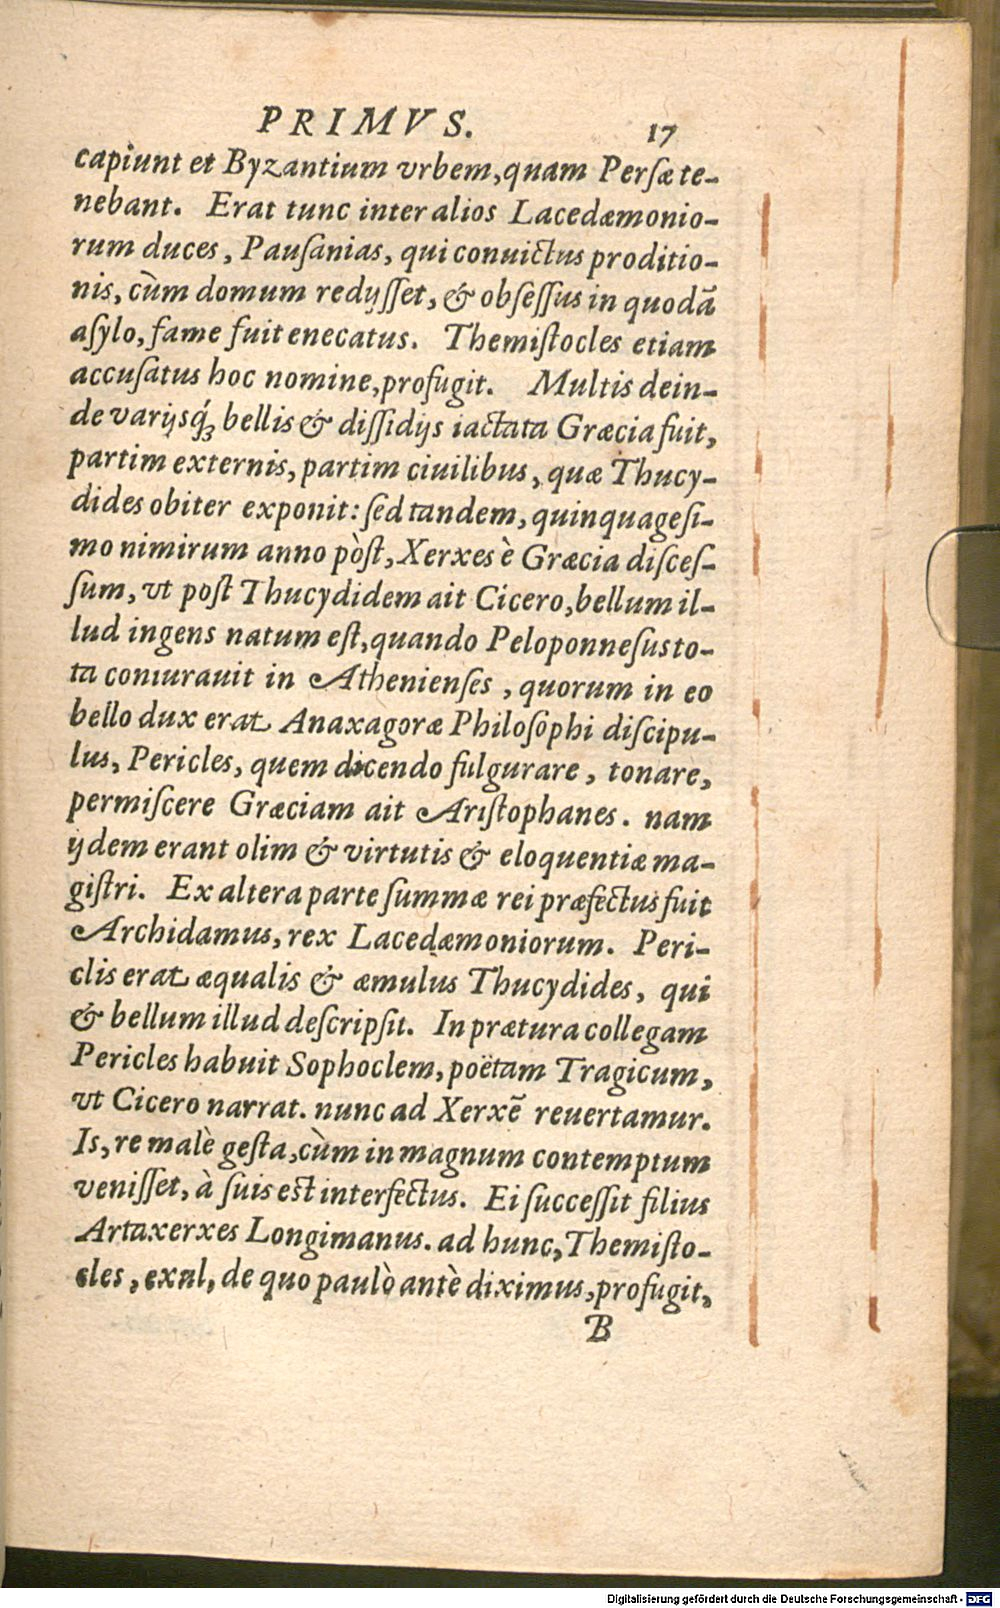 PRIMVS. 17
capiunt et Byzantium vrbem, quam Persæ te-
nebant. Erat tunc inter alios Lacedæmonio-
rum duces, Pausanias, qui conuictus proditio-
nis, cùm domum redijsset, & obsessus in quodã
asylo, fame fuit enecatus. Themistocles etiam
accusatus hoc nomine, profugit. Multis dein-
de varijsq́; bellis & dissidijs iactata Græcia fuit,
partim externis, partim ciuilibus, quæ Thucy-
dides obiter exponit: sed tandem, quinquagesi-
mo nimirum anno pòst, Xerxes è Græcia disces-
sum, vt post Thucydidem ait Cicero, bellum il-
lud ingens natum est, quando Peloponnesus to-
ta coniurauit in Athenienses, quorum in eo
bello dux erat Anaxagoræ Philosophi discipu-
lus, Pericles, quem dicendo fulgurare, tonare,
permiscere Græciam ait Aristophanes. nam
ijdem erant olim & virtutis & eloquentiæ ma-
gistri. Ex altera parte summæ rei præfectus fuit
Archidamus, rex Lacedæmoniorum. Peri-
clis erat æqualis & æmulus Thucydides, qui
& bellum illud descripsit. In prætura collegam
Pericles habuit Sophoclem, poëtam Tragicum,
vt Cicero narrat. nunc ad Xerxẽ reuertamur.
Is, re malè gesta, cùm in magnum contemptum
venisset, à suis est interfectus. Ei successit filius
Artaxerxes Longimanus. ad hunc, Themisto-
cles, exul, de quo paulò antè diximus, profugit,
B
Digitalisierung gefördert durch die Deutsche Forschungsgemeinschaft - DFG